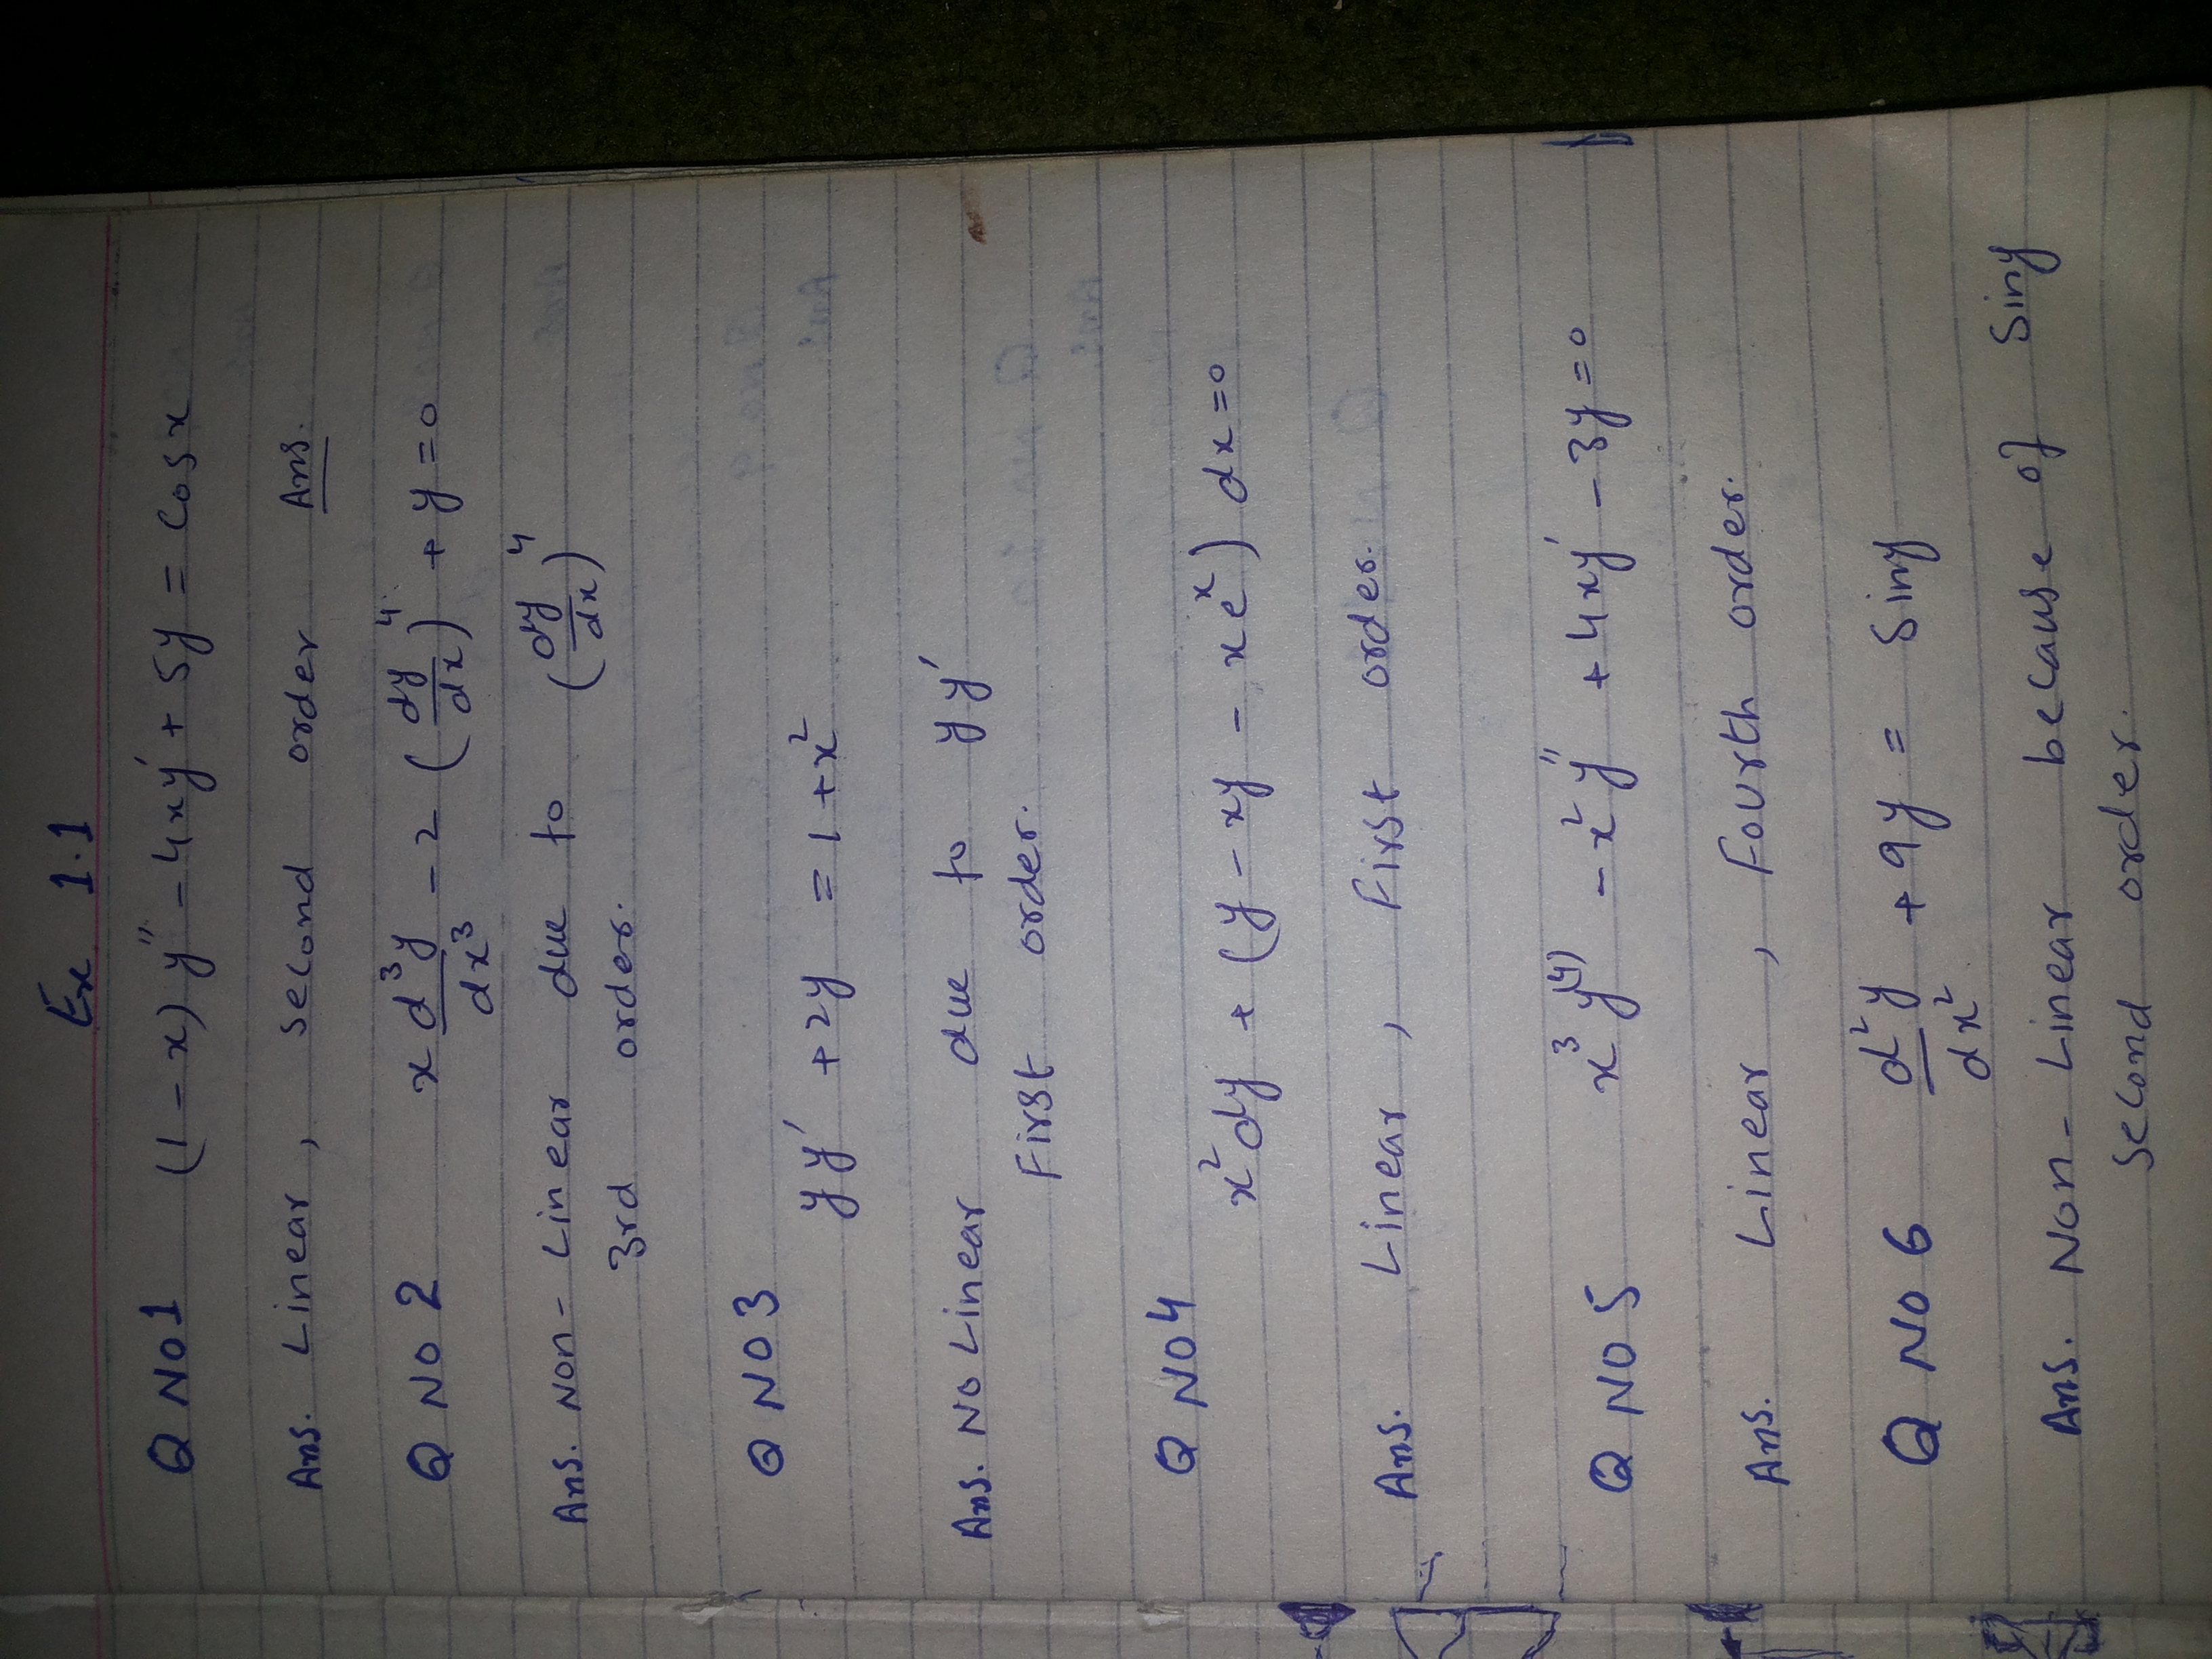 Ex 1.1
Q NO 1 (1 - x) y'' - 4xy' + 5y = Cosx
Ans. Linear, Second order Ans.
Q NO 2 x d³y/dx³ - 2 (dy/dx)⁴ + y = 0
Ans. Non-Linear due to (dy/dx)⁴
3rd order.
Q NO 3
yy' + 2y = 1 + x²
Ans. No Linear due to yy'
First order.
Q NO 4
x²dy + (y - xy - xeˣ) dx = 0
Ans. Linear, First order.
Q NO 5 x³y⁽⁴⁾ - x²y'' + 4xy' - 3y = 0
Ans. Linear, Fourth order.
Q NO 6 d²y/dx² + 9y = Siny
Ans. Non-Linear because of Siny
Second order.